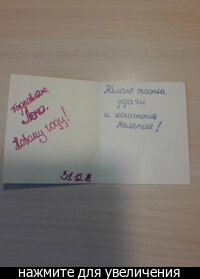 Поздравляю,
Лена.
Новому году!
31.12.11
Желаю счастья,
удачи
и исполнения
Желаний!
нажмите для увеличения